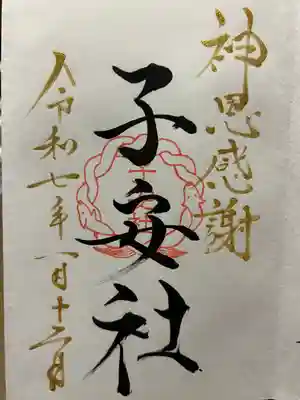 神恩感謝
子安社
令和七年一月十二日